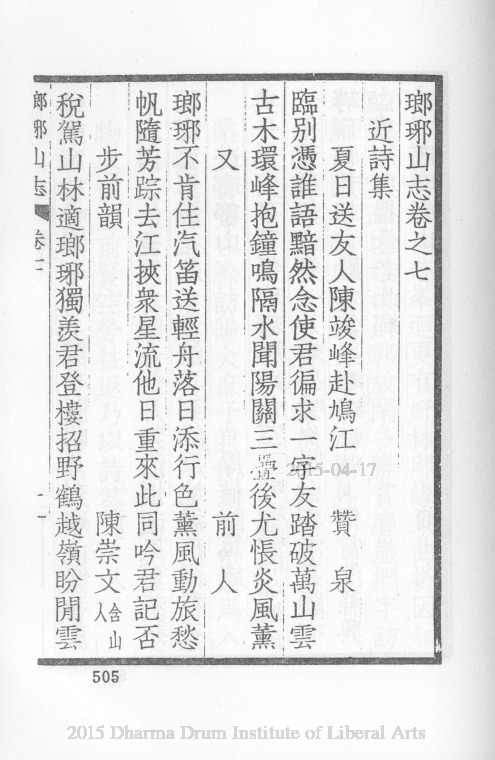 瑯琊山志卷之七
近詩集
夏日送友人陳竣峰赴鳩江 贊泉
臨別憑誰語黯然念使君徧求一字友踏破萬山雲
古木環峰抱鐘鳴隔水聞陽關三疊後尤悵炎風薰
又 前人
瑯琊不肯住汽笛送輕舟落日添行色薰風動旅愁
帆隨芳踪去江挾衆星流他日重來此同吟君記否
步前韻 陳崇文含山人
稅駕山林適瑯琊獨羨君登樓招野鶴越嶺盼閒雲
瑯琊山志 卷七 一
505
2015-04-17
2015 Dharma Drum Institute of Liberal Arts